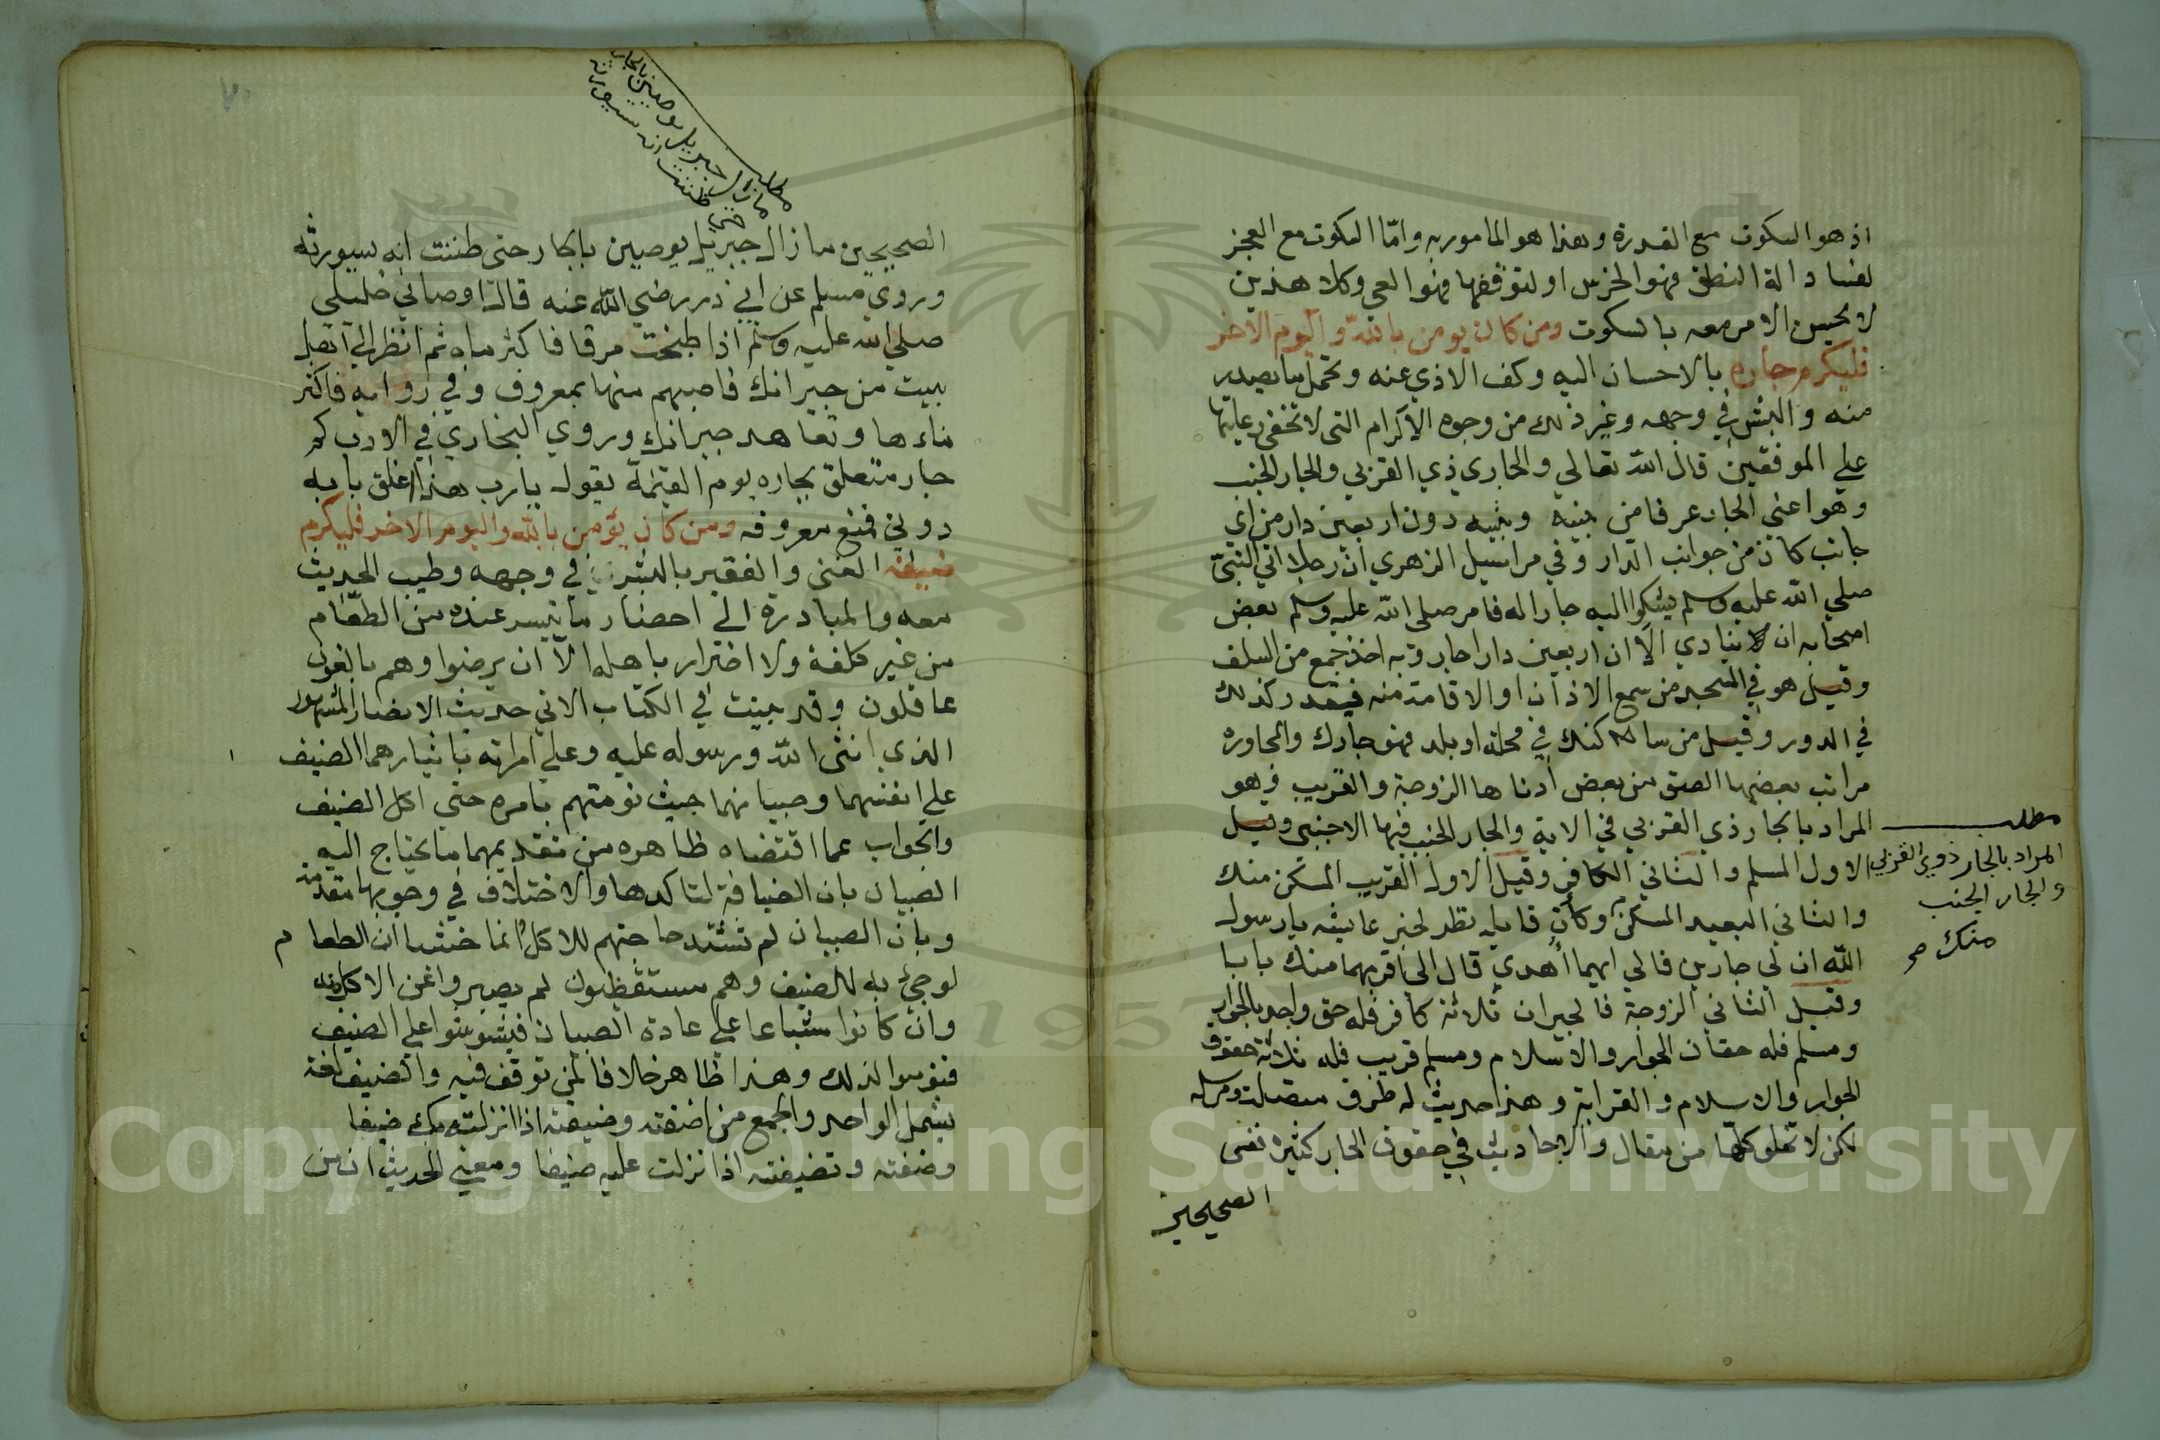 اذ هو السكوت مع القدرة وهذا هو المامور به وامّا السكوت مع العجز
لفساد الة النطق فهو الخرس او لتوقفها فهو العي وكلا هذين
لا يحسن الامر معه بالسكوت ومن كان يومن بالله واليوم الاخر
فليكرم جاره بالاحسان اليه وكف الاذي عنه وتحمل ما يصدر
منه والبشر في وجهه وغير ذلك من وجوه الاكرام التي لا تخفي رعايتها
علي الموفقين قال الله تعالي والجار ذي القربي والجار الجنب
وهو اعني الجار عرفا من بينه وبينه دون اربعين دار من اي
جانب كان من جوانب الدار وفي مراسيل الزهري ان رجلا اتي النبيّ
صلي الله عليه وسلم يشكوا اليه جارا له فامر صلي الله عليه وسلم بعض
اصحابه ان ينادي الا ان اربعين دارا جار وبه اخذ جمع من السلف
وقيل هو في المسجد من سمع الاذان او الاقامة منه فيقدر كذلك
في الدور وقيل من ساكنك في محلة او بلد فهو جارك والمجاورة
مراتب بعضها الصق من بعض ادناها الزوجة والقريب فهو
المراد بالجار ذي القربي في الاية والجار الجنب فيها الاجنبي وقيل
الاول المسلم والثاني الكافر وقيل الاول القريب المسكن منك
والثاني البعيد المسكن وكان قايله نظر لخبر عايشه يا رسول
الله ان لي جارين فالي ايهما أهدي قال الي اقربهما منك بابا
وقيل الثاني الزوجة فالجيران ثلاثة كافر فله حق واحد بالجوار
ومسلم فله حقان الجوار والاسلام ومسلم قريب فله ثلاثة حقوق
الجوار والاسلام والقرابة وهذا حديث له طرق متصلة ومرسلة
لكن لا تخلو كلها من مقال والاحاديث في حقوق الجار كثيرة ففي
الصحيحين
مطلب
المراد بالجار ذوي القربي
والجار الجنب
منك صح
مطلب
ما زال جبريل يوصيني بالجار
حتي ظننت انه سيورثه
الصحيحين ما زال جبريل يوصيني بالجار حتى ظننت انه سيورثه
وروي مسلم عن ابي ذر رضي الله عنه قال اوصاني خليلي
صلي الله عليه وسلم اذا طبخت مرقا فاكثر ماه ثم انظر الي اهل
بيت من جيرانك فاصبهم منها بمعروف وفي رواية فاكثر
ماءها وتعاهد جيرانك وروي البخاري في الادب كم
جار متعلق بجاره يوم القيمة يقول يارب هذا اغلق بابه
دوني فمنع معروفه ومن كان يؤمن بالله واليوم الاخر فليكرم
ضيفه الغني والفقير بالبشر في وجهه وطيب الحديث
معه والمبادرة الي احضار ما تيسر عنده من الطعام
من غير كلفة ولا اضرار باهله الا ان يرضوا وهم بالغون
عاقلون وقد بينت في الكتاب الاتي حديث الانصار المشهور
الذي اثنى الله ورسوله عليه وعلي امراته بايثارهما الضيف
علي انفسهما وصبيانهما حيث نومتهم بامره حتي اكل الضيف
والجواب عما اقتضاه ظاهره من تقديمهما ما يحتاج اليه
الصبيان بان الضيافة لتاكدها والاختلاف في وجوبها مقدمة
وبان الصبيان لم تشتد حاجتهم للاكل وانما خشيا ان الطعام
لوجئ به للضيف وهم مستيقظون لم يصبروا عن الاكل منه
وان كانوا شباعا علي عادة الصبيان فيشوشوا علي الضيف
فنوموا لذلك وهذا ظاهر خلافا لمن توقف فيه والضيف لغة
يشمل الواحد والجمع من اضفته وضيفته اذا انزلته بك ضيفا
وضفته وتضيفته اذا نزلت عليه ضيفا ومعني الحديث ان من